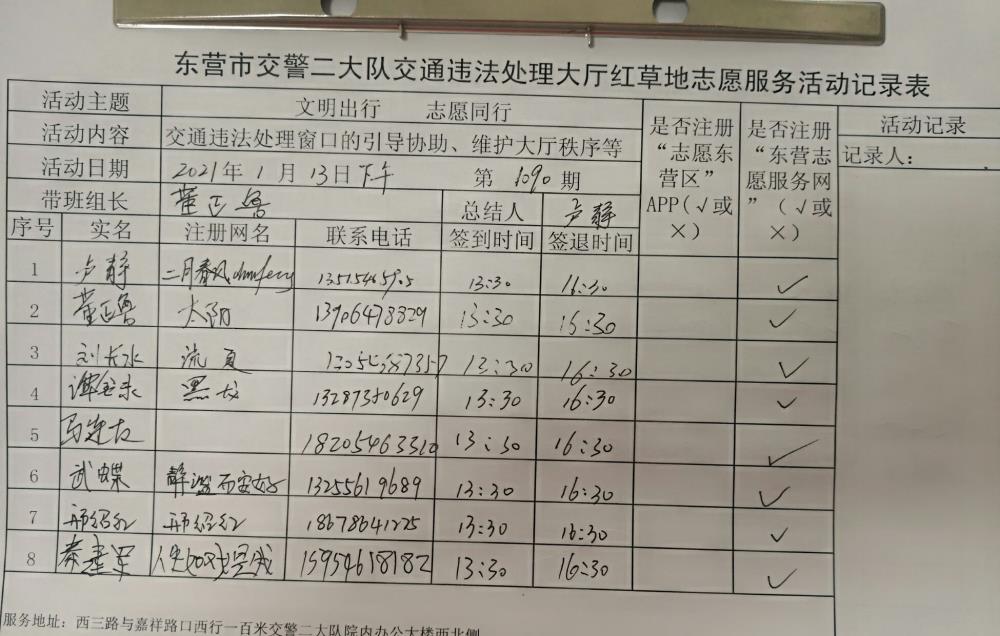 东营市交警二大队交通违法处理大厅红草地志愿服务活动记录表
活动主题 文明出行 志愿同行 是否注册“志愿东营区”APP(√或×) 是否注册“东营志愿服务网”(√或×) 活动记录
活动内容 交通违法处理窗口的引导协助、维护大厅秩序等 记录人:
活动日期 2021年1月13日下午 第1090期
带班组长 董正鲁 总结人 卢静
序号 实名 注册网名 联系电话 签到时间 签退时间
1 卢静 二月春风 13:30 16:30 ✓
2 董正鲁 太阳 13906478829 13:30 16:30 ✓
3 刘长水 流夏 13:30 16:30 ✓
4 黑龙 13287380629 13:30 16:30 ✓
5 18205463310 13:30 16:30 ✓
6 武蝶 静谧而安好 13255619689 13:30 16:30 ✓
7 邢绍红 邢绍红 18678641225 13:30 16:30 ✓
8 秦建军 15954618182 13:30 16:30 ✓
服务地址:西三路与嘉祥路口西行一百米交警二大队院内办公大楼西北侧